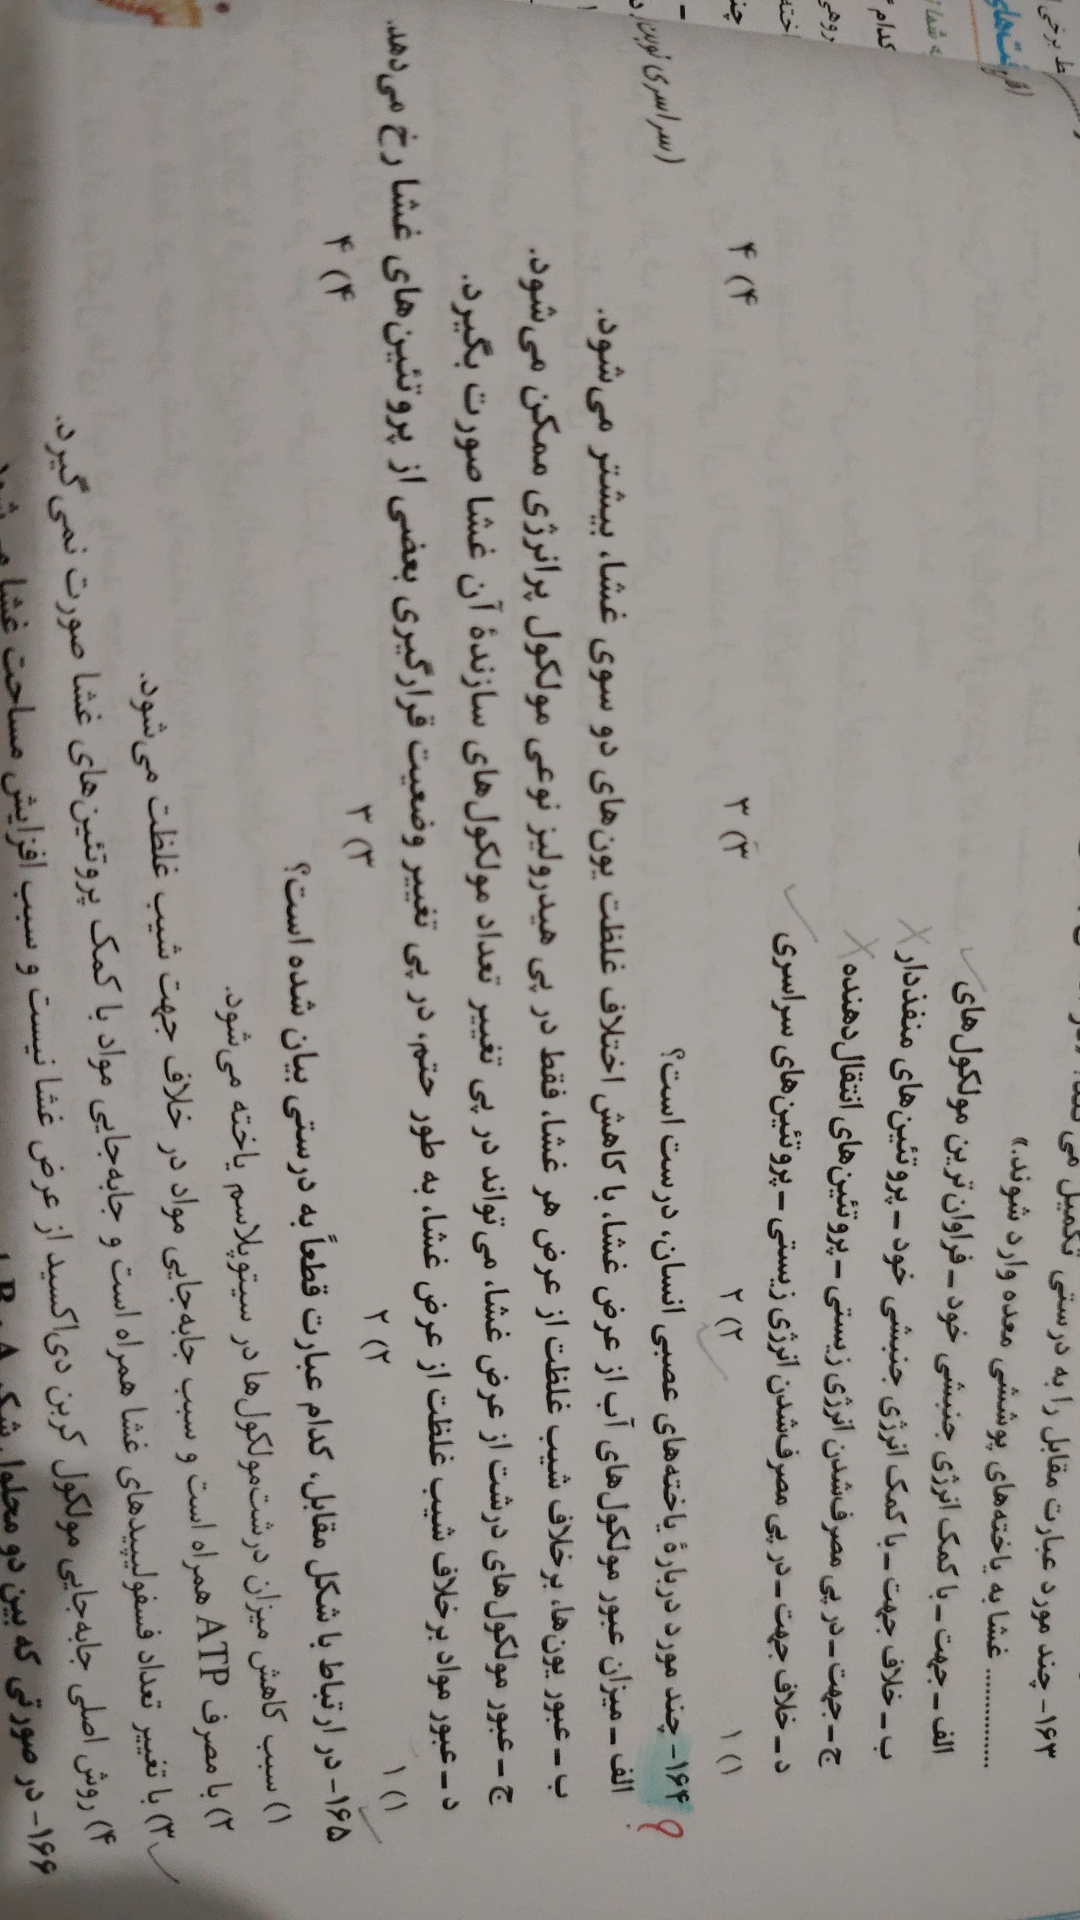 ۱۶۳- چند مورد عبارت مقابل را به درستی تکمیل می‌کند؟
............ غشا به یاخته‌های پوششی معده وارد شوند.»
الف - جهت - با کمک انرژی جنبشی خود - فراوان‌ترین مولکول‌های
ب - خلاف جهت - با کمک انرژی جنبشی خود - پروتئین‌های منفذدار
ج - جهت - در پی مصرف‌شدن انرژی زیستی - پروتئین‌های انتقال‌دهنده
د - خلاف جهت - در پی مصرف‌شدن انرژی زیستی - پروتئین‌های سراسری
۱) ۱ ۲) ۲ ۳) ۳ ۴) ۴
۱۶۴- چند مورد دربارهٔ یاخته‌های عصبی انسان، درست است؟ (سراسری نوبت
الف - میزان عبور مولکول‌های آب از عرض غشا، با کاهش اختلاف غلظت یون‌های دو سوی غشا، بیشتر می‌شود.
ب - عبور یون‌ها، برخلاف شیب غلظت از عرض هر غشا، فقط در پی هیدرولیز نوعی مولکول پرانرژی ممکن می‌شود.
ج - عبور مولکول‌های درشت از عرض غشا، می‌تواند در پی تغییر تعداد مولکول‌های سازندهٔ آن غشا صورت بگیرد.
د - عبور مواد برخلاف شیب غلظت از عرض غشا، به طور حتم، در پی تغییر وضعیت قرارگیری بعضی از پروتئین‌های غشا رخ می‌دهد.
۱) ۱ ۲) ۲ ۳) ۳ ۴) ۴
۱۶۵- در ارتباط با شکل مقابل، کدام عبارت قطعاً به درستی بیان شده است؟
۱) سبب کاهش میزان درشت‌مولکول‌ها در سیتوپلاسم یاخته می‌شود.
۲) با مصرف ATP همراه است و سبب جابه‌جایی مواد در خلاف جهت شیب غلظت می‌شود.
۳) با تغییر تعداد فسفولیپیدهای غشا همراه است و جابه‌جایی مواد با کمک پروتئین‌های غشا صورت نمی‌گیرد.
۴) روش اصلی جابه‌جایی مولکول کربن دی‌اکسید از عرض غشا نیست و سبب افزایش مساحت غشا می‌شود.
۱۶۶- در صورتی که بین دو محلول